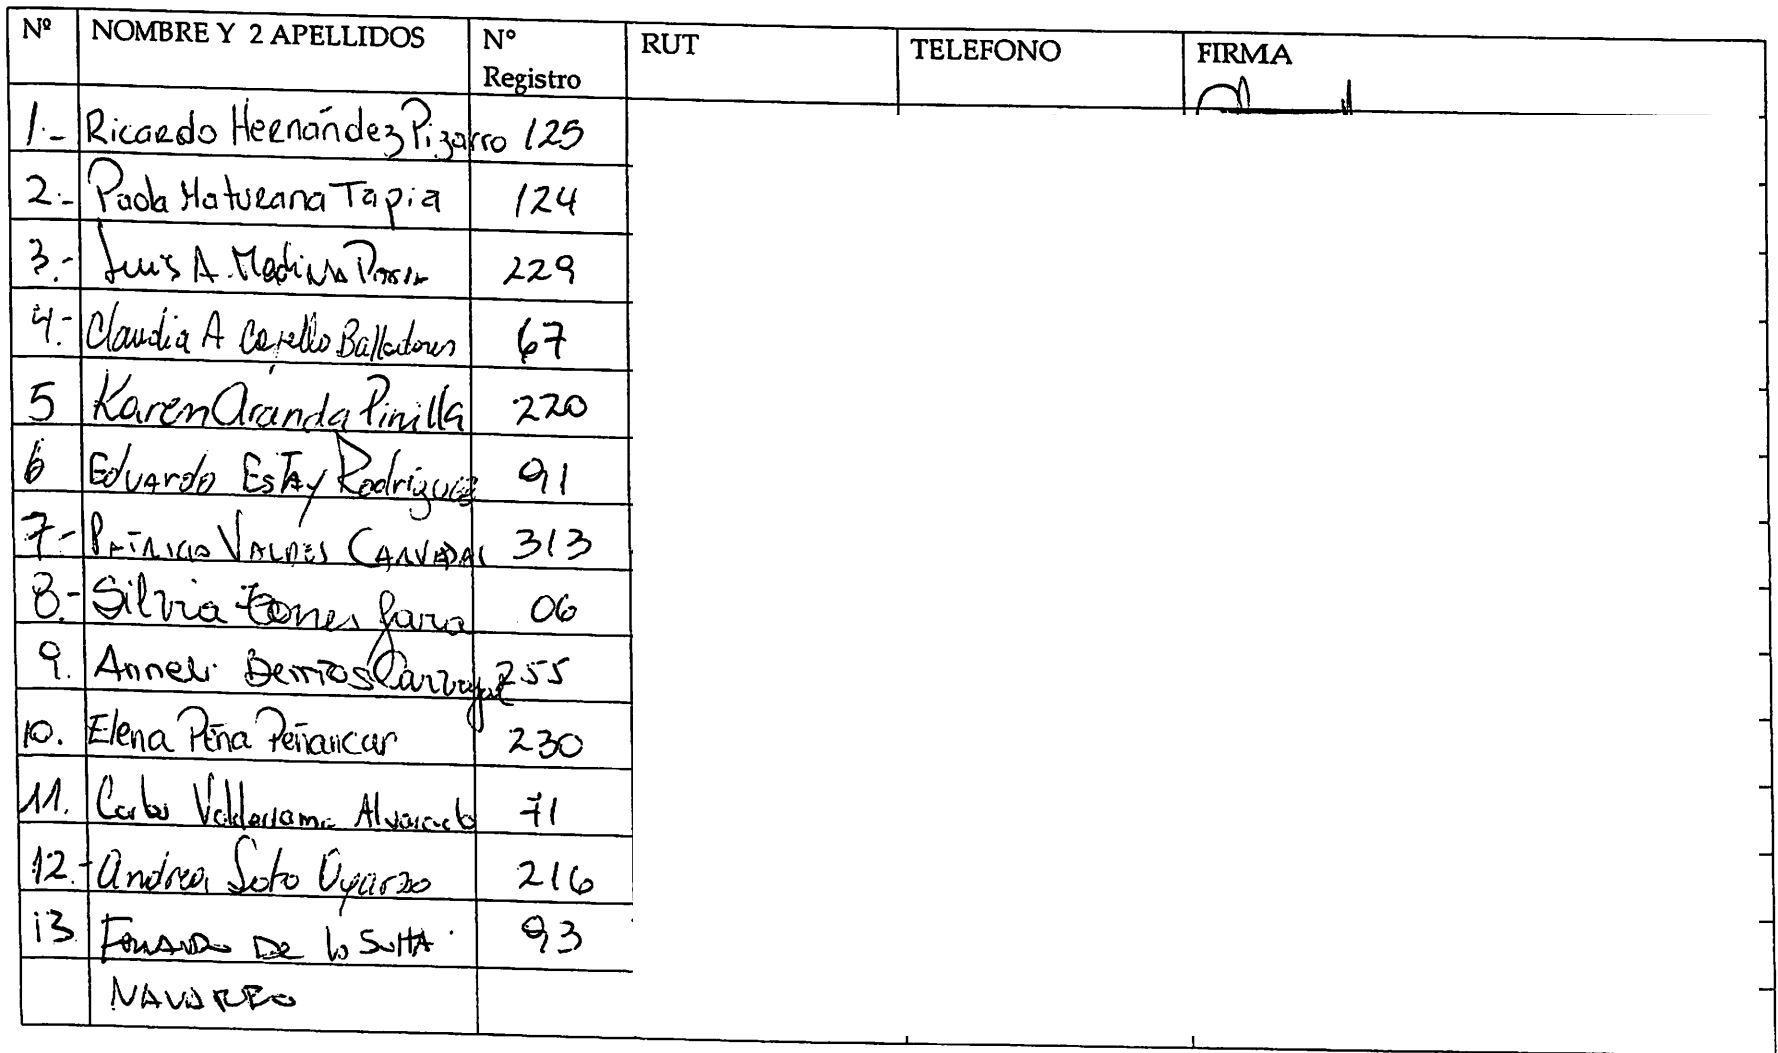 Nº NOMBRE Y 2 APELLIDOS N° Registro RUT TELEFONO FIRMA
1.- Ricardo Hernández Pizarro 125
2.- Paola Maturana Tapia 124
3.- Luis A. Medina 229
4.- Claudia A 67
5 Karen Aranda Pinilla 220
6 Eduardo Estay Rodríguez 91
7- Patricio Valdes Carvajal 313
8.- Silvia Jara 06
9. Anneli Berrios Carvajal 255
10. Elena Peña 230
11. Carlos Valderrama Alvarado 71
12.- Andrea Soto Oyarzo 216
13 Fernando De 93
NAVARRO